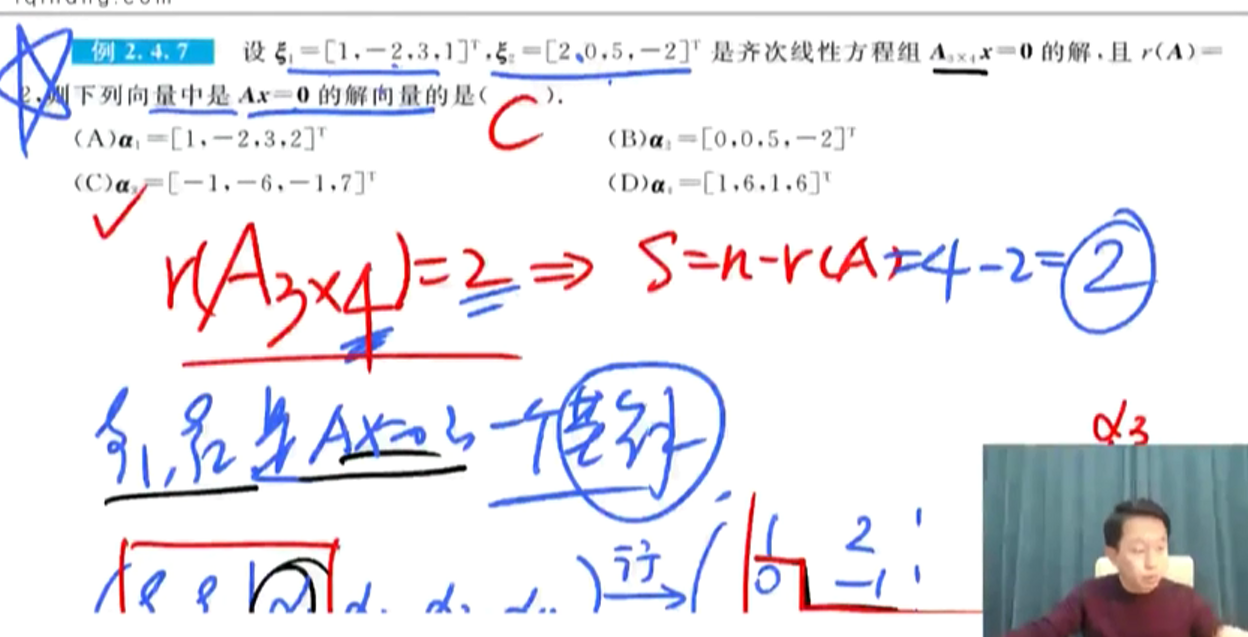 例 2.4.7 设 ξ₁=[1,-2,3,1]ᵀ,ξ₂=[2,0,5,-2]ᵀ 是齐次线性方程组 A₃ₓ₄x=0 的解,且 r(A)=
2,则下列向量中是 Ax=0 的解向量的是( C ).
(A)α₁=[1,-2,3,2]ᵀ (B)α₂=[0,0,5,-2]ᵀ
(C)α₃=[-1,-6,-1,7]ᵀ (D)α₄=[1,6,1,6]ᵀ
r(A₃ₓ₄)=2 ⇒ S=n-r(A)=4-2=2
ξ₁,ξ₂ 是 Ax=0 的 一个基础解系
α₃
行
1 2
0 -1